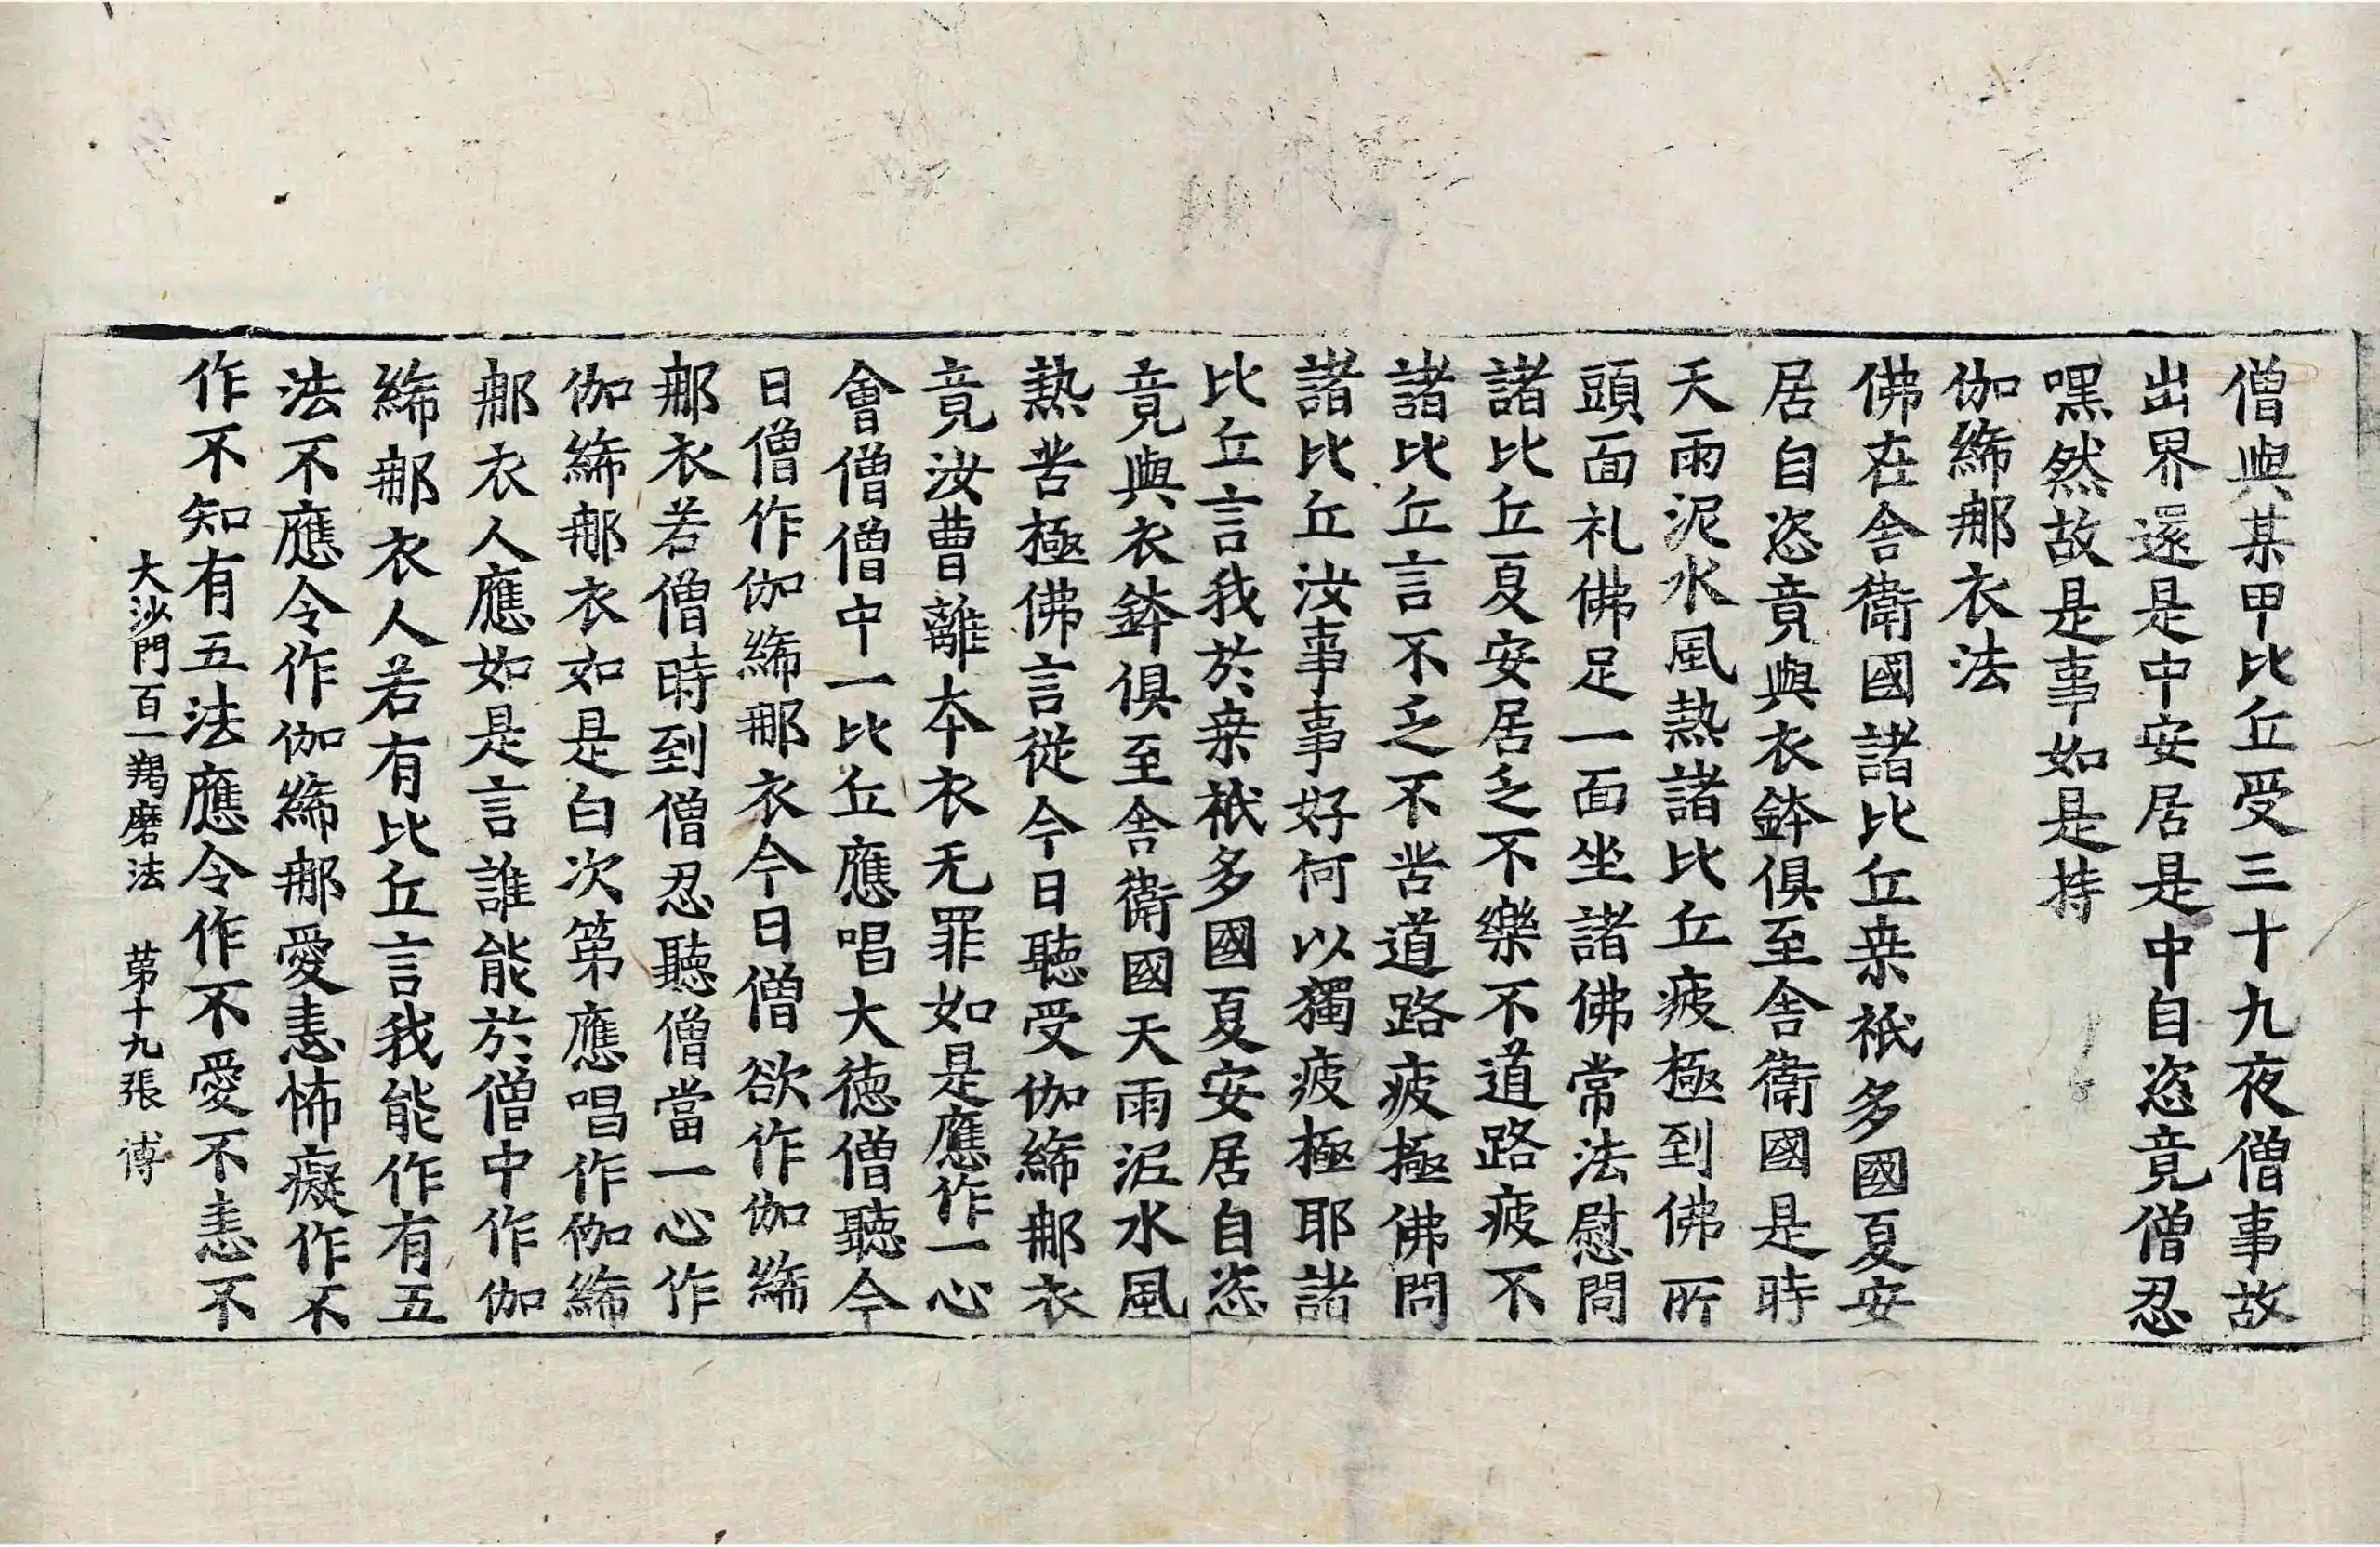 僧與某甲比丘受三十九夜僧事故
出界還是中安居是中自恣竟僧忍
嘿然故是事如是持
伽絺那衣法
佛在舍衛國諸比丘桒祇多國夏安
居自恣竟與衣鉢俱至舍衛國是時
天雨泥水風熱諸比丘疲極到佛所
頭面礼佛足一面坐諸佛常法慰問
諸比丘夏安居乏不樂不道路疲不
諸比丘言不乏不苦道路疲極佛問
諸比丘汝事事好何以獨疲極耶諸
比丘言我於桒祇多國夏安居自恣
竟與衣鉢俱至舍衛國天雨泥水風
熱苦極佛言從今日聽受伽絺那衣
竟汝曹離本衣无罪如是應作一心
會僧僧中一比丘應唱大德僧聽今
日僧作伽絺那衣今日僧欲作伽絺
那衣若僧時到僧忍聽僧當一心作
伽絺那衣如是白次第應唱作伽絺
那衣人應如是言誰能於僧中作伽
絺那衣人若有比丘言我能作有五
法不應令作伽絺那愛恚怖癡作不
作不知有五法應令作不愛不恚不
大沙門百一羯磨法 苐十九張 博